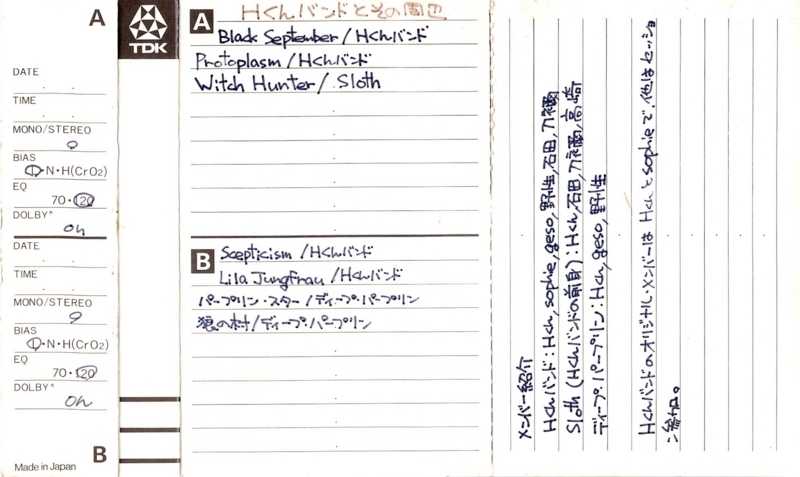 A
DATE
TIME
MONO/STEREO
BIAS
Ⓘ・N・H(CrO2)
EQ
70・120
DOLBY*
on
DATE
TIME
MONO/STEREO
BIAS
Ⓘ・N・H(CrO2)
EQ
70・120
DOLBY*
on
Made in Japan
B
TDK
Hくんバンドとその周辺
A
Black September / Hくんバンド
Protoplasm / Hくんバンド
Witch Hunter / Sloth
B
Scepticism / Hくんバンド
Lila Jungfrau / Hくんバンド
パープリン・スター / ディープ・パープリン
狼の村 / ディープ・パープリン
メンバー紹介
Hくんバンド : Hくん, sophie, geso, 野生, 石田, 刀禰
Sloth (Hくんバンドの前身) : Hくん, 石田, 刀禰, 高崎
ディープ・パープリン : Hくん, geso, 野生
HくんバンドのオリジナルメンバーはHくんとsophieで、他はセッショ
ン参加。